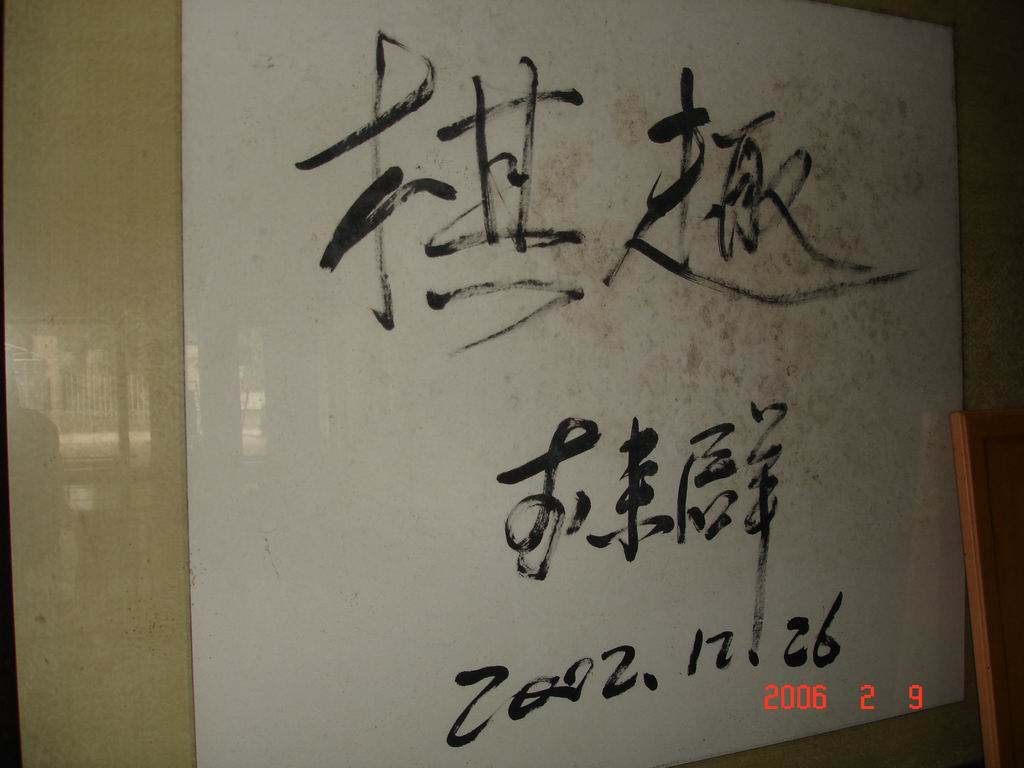 棋趣
李来群
2002.12.26
2006 2 9